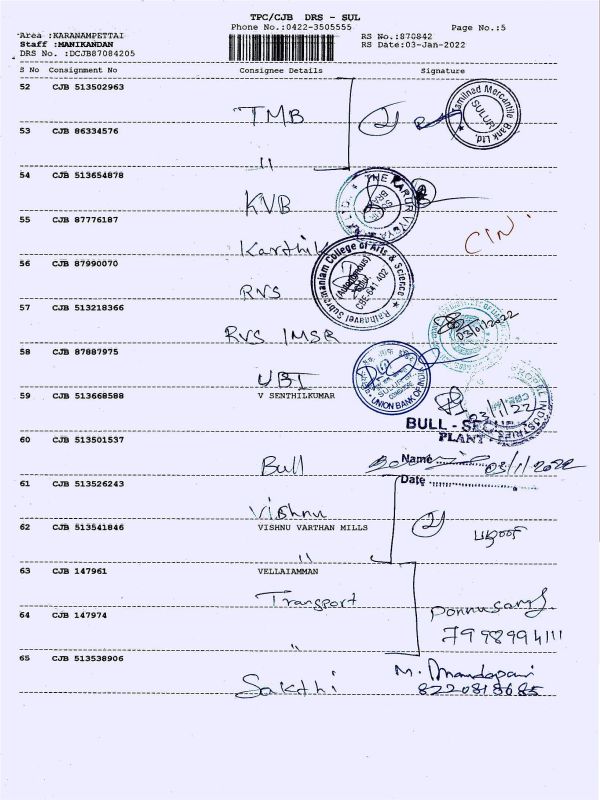 TPC/CJB DRS - SUL
Phone No.:0422-3505555
Page No.:5
Area :KARANAMPETTAI
Staff :MANIKANDAN
DRS No. :DCJB87084205
RS No.:870842
RS Date:03-Jan-2022
S No Consignment No Consignee Details Signature
52 CJB 513502963
TMB
2
Tamilnad Mercantile Bank Ltd.
SULUR
53 CJB 86334576
"
54 CJB 513654878
KVB
THE KARUR VYSYA
55 CJB 87776187
Karthik
CIN
56 CJB 87990070
RVS
Rathnavel Subramaniam College of Arts & Science
(Autonomous)
Sulur,
CBE-641 402
57 CJB 513218366
RVS IMSR
03/01/2022
58 CJB 87887975
UBI
UNION BANK OF INDIA
59 CJB 513668588
V SENTHILKUMAR
03/1/22
INDUSTRIES
BULL -
PLANT
60 CJB 513501537
Bull
Name
03/1/2022
Date
61 CJB 513526243
Vishnu
62 CJB 513541846
VISHNU VARTHAN MILLS
"
2
63 CJB 147961
VELLAIAMMAN
Transport
64 CJB 147974
"
Ponnusamy
7998994111
65 CJB 513538906
Sakthi
8220818685